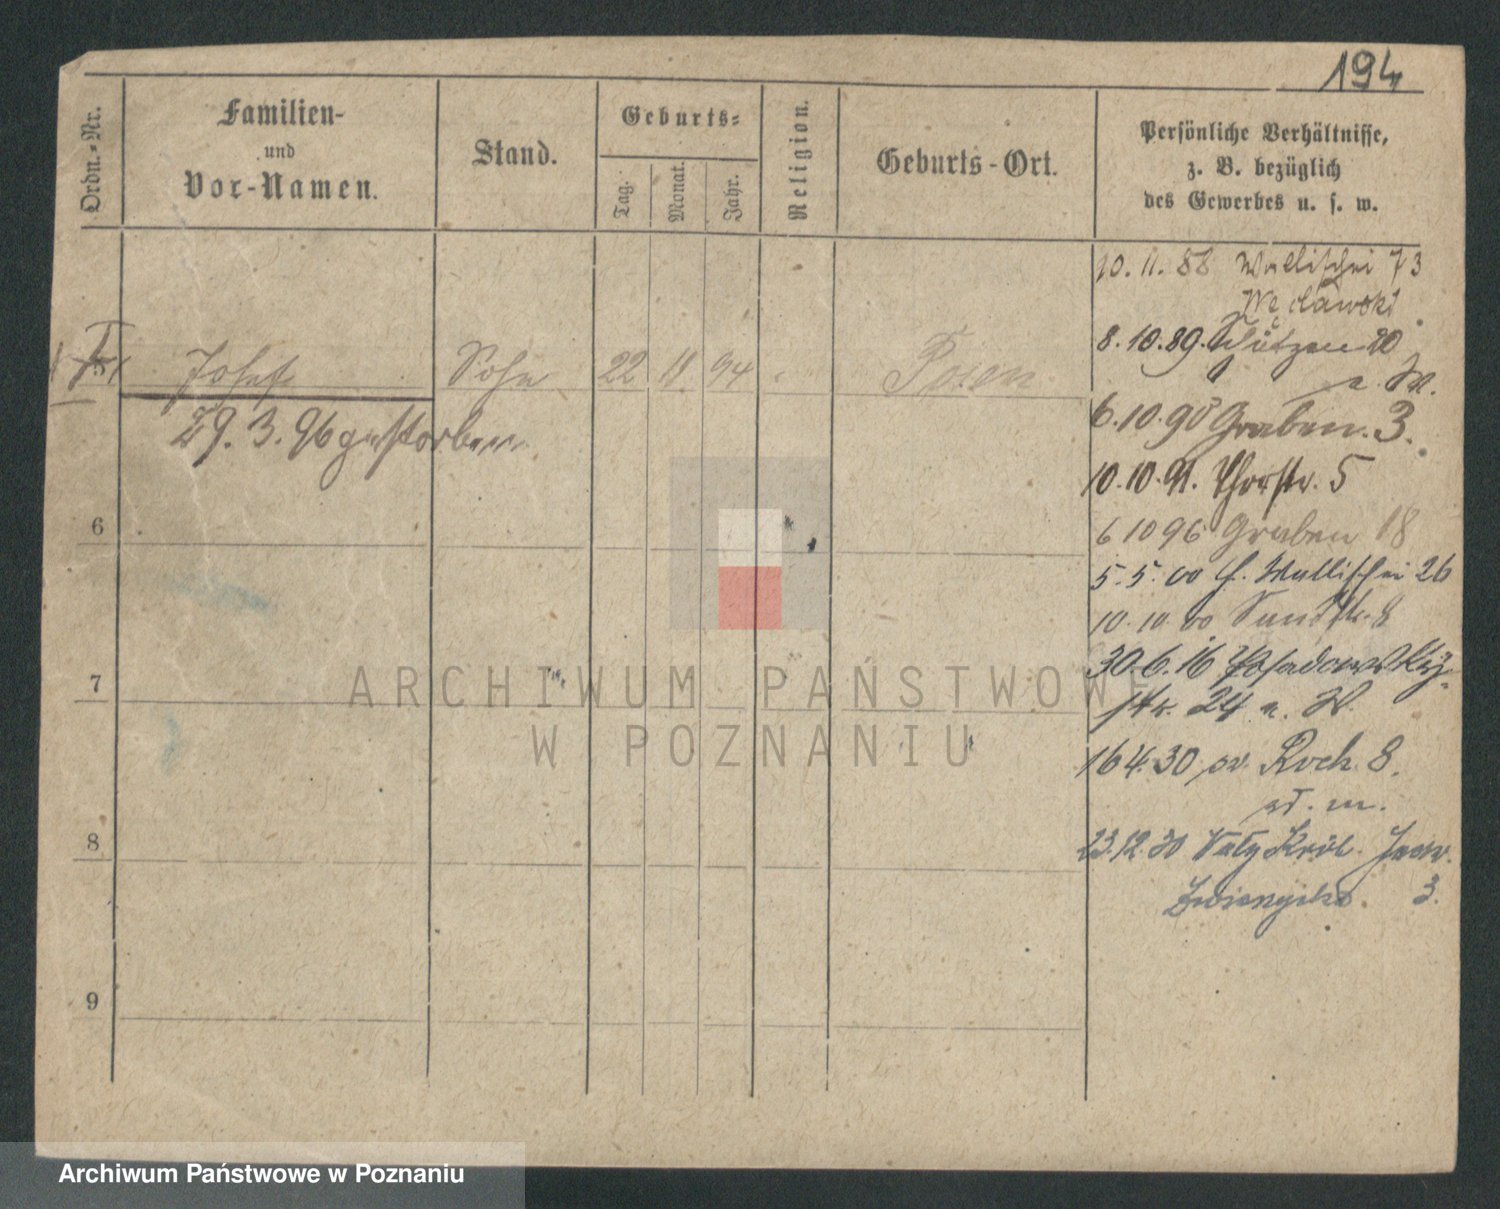 194
Ordn.-Nr.
Familien-
und
Vor-Namen.
Stand.
Geburts-
Tag.
Monat.
Jahr.
Religion.
Geburts-Ort.
Persönliche Verhältnisse,
z. B. bezüglich
des Gewerbes u. s. w.
10. 11. 88 Wallischei 73
Węclawski
8. 10. 89. Schützen 20
a. W.
5 Josef Sohn 22 11 94 Posen
29. 3. 96 gestorben
6. 10. 90 Graben. 3.
10. 10. 91. Thorstr. 5
6 10 96 Graben 18
6
5. 5. 00 Wallischei 26
10. 10. 00 Sandstr. 8
30. 6. 16 Posadowsky-
7
str. 24 a. W.
16 4. 30 Roch 8.
23. 12. 30
8
3.
9
ARCHIWUM PAŃSTWOWE
W POZNANIU
Archiwum Państwowe w Poznaniu